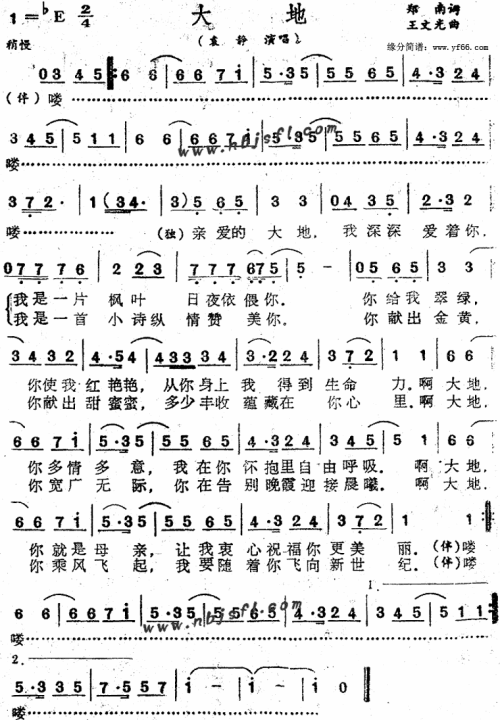 1=♭E 2/4 大 地 郑 南词
王文光曲
稍慢 (袁 静 演唱) 缘分简谱:www.yf66.com
03 45 6 6 6 67 i 5·35 5 5 65 4·3 24
(伴) 喽
3 45 5 11 6 6 6 67 i 5·35 5 5 65 4·3 24
www.hbjsfl.com
喽
3 72· 1(34· 3)5 65 3 3 04 35 2·3 2
喽 (独) 亲 爱的 大 地, 我 深深 爱 着你,
07 7 7 6 2 23 7 7 675 5 - 05 65 3 3
我是一片 枫叶 日夜依 偎你。 你 给我 翠绿,
我是一首 小诗纵 情赞 美你。 你 献出 金黄,
34 32 4·54 4 33 34 3·2 24 3 72 1 1 6 6
你使我 红艳艳, 从你身上 我 得到 生命 力。啊大地,
你献出 甜蜜蜜, 多少丰收 蕴藏在 你心 里。啊大地,
6 67 i 5·35 5 5 65 4·3 24 3 45 5 1 6 6
你多情 多 意, 我 在你 怀抱里自由呼吸。 啊大地,
你宽广 无 际, 你 在告 别晚霞迎接晨曦。 啊大地,
6 67 i 5·35 5 5 65 4·3 24 3 72· 1 1
你就是 母 亲, 让我衷 心祝福你更美 丽。(伴)喽
你乘风 飞 起, 我要随 着你飞向新世 纪。(伴)喽
1.
6 6 6 67 i 5·35 5 5 65 4·3 24 3 45 5 11
喽 www.hbjsfl.com
2.
5·3 35 7·5 57 i - i - i 0
喽